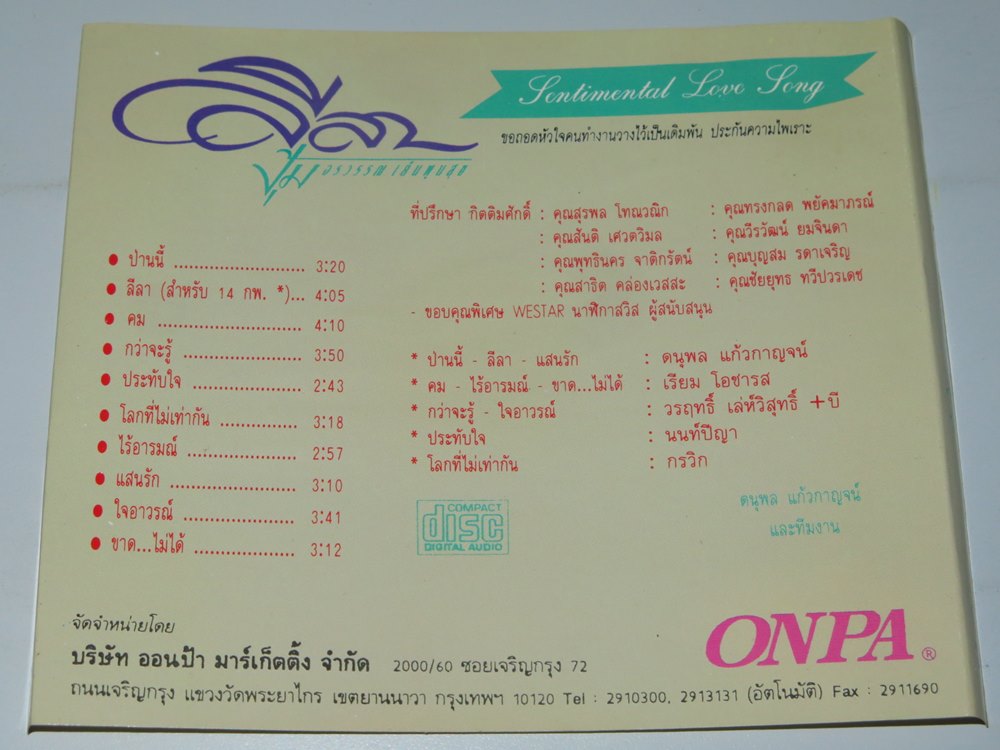 ลีลา
ปุ้ม อรวรรณ เย็นพูนสุข
Sentimental Love Song
ขอถอดหัวใจคนทำงานวางไว้เป็นเดิมพัน ประกันความไพเราะ
ที่ปรึกษา กิตติมศักดิ์ : คุณสุรพล โทณวณิก : คุณทรงกลด พยัคมาภรณ์
: คุณสันติ เศวตวิมล : คุณวีรวัฒน์ ยมจินดา
: คุณพุทธินคร จาติกรัตน์ : คุณบุญสม รดาเจริญ
: คุณสาธิต คล่องเวสสะ : คุณชัยยุทธ ทวีปวรเดช
- ขอบคุณพิเศษ WESTAR นาฬิกาสวิส ผู้สนับสนุน
● ป่านนี้ ........................ 3:20
● ลีลา (สำหรับ 14 กพ. *)... 4:05
● คม ............................... 4:10
● กว่าจะรู้ ...................... 3:50
● ประทับใจ .................... 2:43
● โลกที่ไม่เท่ากัน .............. 3:18
● ไร้อารมณ์ ..................... 2:57
● แสนรัก ....................... 3:10
● ใจอาวรณ์ .................... 3:41
● ขาด...ไม่ได้ .................. 3:12
* ป่านนี้ - ลีลา - แสนรัก : ดนุพล แก้วกาญจน์
* คม - ไร้อารมณ์ - ขาด...ไม่ได้ : เรียม โอชารส
* กว่าจะรู้ - ใจอาวรณ์ : วรฤทธิ์ เล่ห์วิสุทธิ์ + บี
* ประทับใจ : นนท์ปีญา
* โลกที่ไม่เท่ากัน : กรวิก
COMPACT
disc
DIGITAL AUDIO
ดนุพล แก้วกาญจน์
และทีมงาน
จัดจำหน่ายโดย
บริษัท ออนป้า มาร์เก็ตติ้ง จำกัด 2000/60 ซอยเจริญกรุง 72
ถนนเจริญกรุง แขวงวัดพระยาไกร เขตยานนาวา กรุงเทพฯ 10120 Tel : 2910300, 2913131 (อัตโนมัติ) Fax : 2911690
ONPA ®